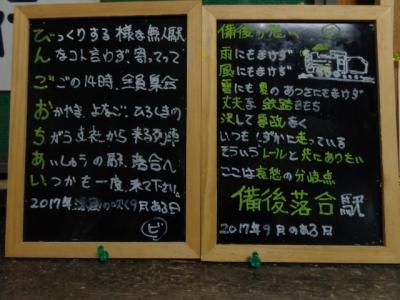 びっくりする 様な無人駅
んなコト言わず、寄ってって
ごごの14時、全員集合
おかやま、よなご、ひろしまの
ちがう支社から 来る列車
あいしゅうの駅、落合へ
いつかも一度、来て下さい。
2017年 の吹く9月ある日
備後の
雨にもまけず
風にもまけず
雪にも 夏のあつさにもまけず
丈夫な 鉄路をもち
決して 事故なく
いつも しずかに走っている
そういう レールと 共にありたい
ここは 哀愁の 分岐点
備後落合駅
2017年 9月のある日